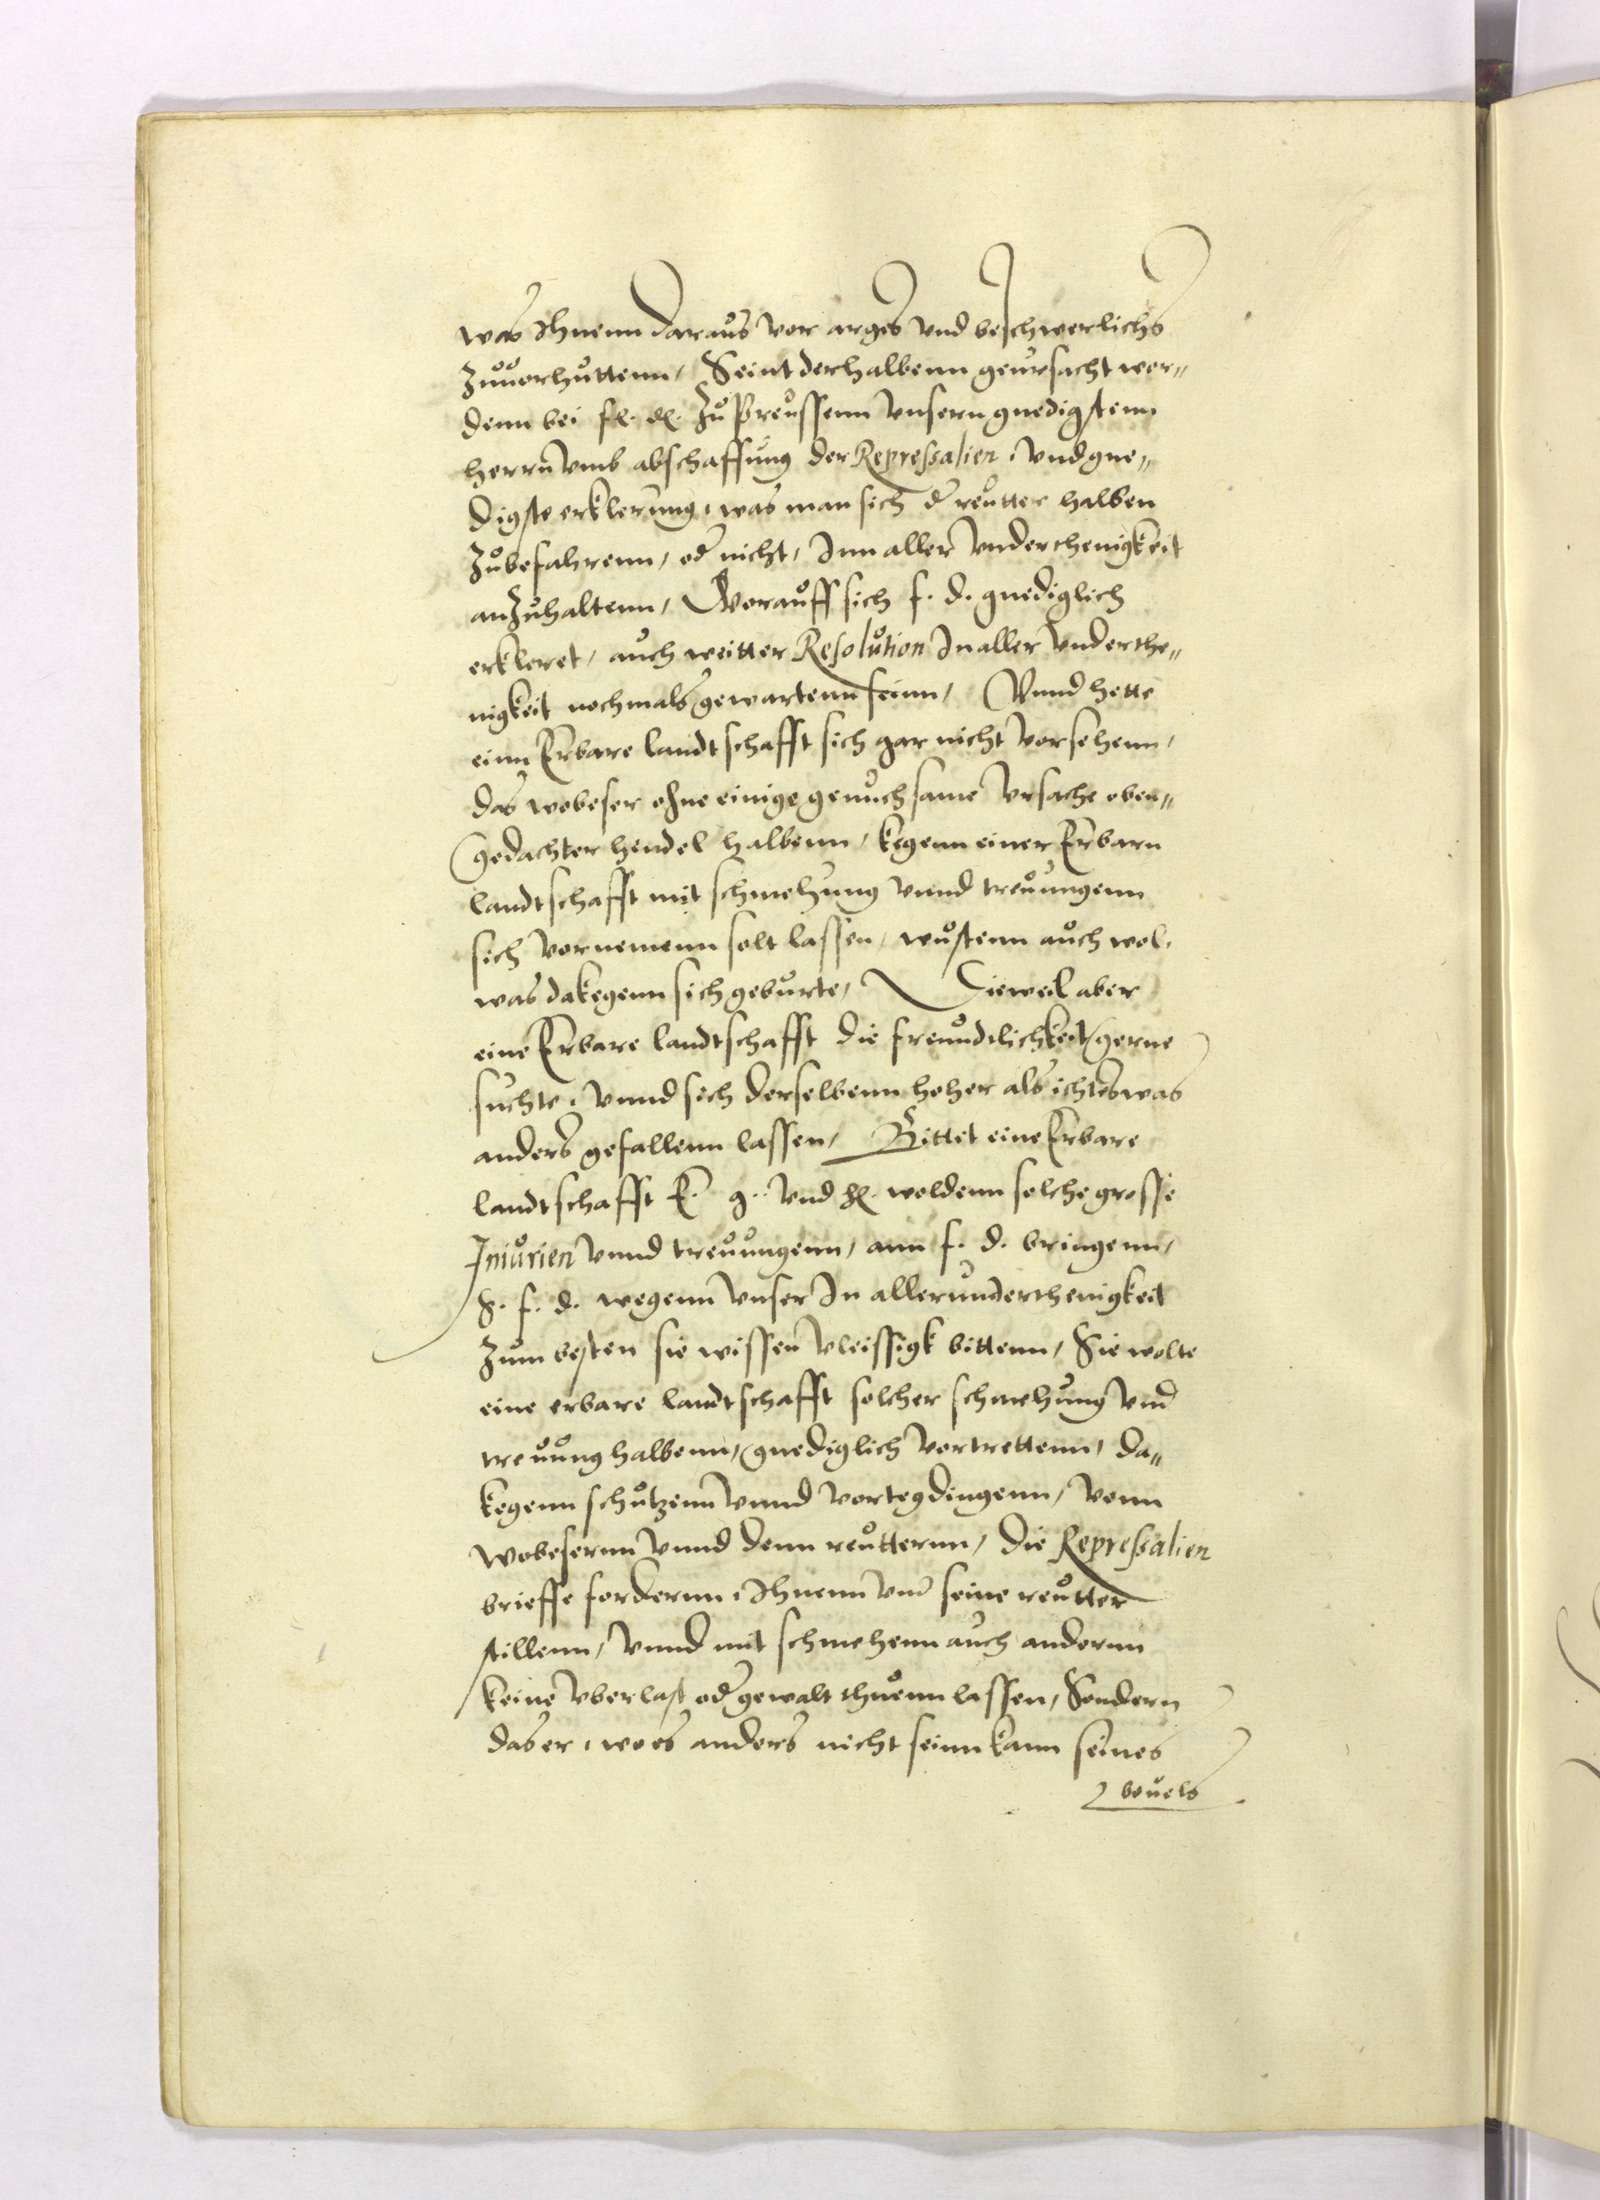 was Ihnenn daraus vor arges vnd beschwerlichs
zuuorhuttenn, Seint derhalbenn geursacht wor„
denn bei fl. dl. Zu Preussenn vnsern gnedigstenn
herrn vmb abschaffung der Repressalien, vnd gne„
digste erklerung, was man sich d reutter halben
zubefahrenn, od nicht, Inn aller vnderthenigkeit
anzuhaltenn, Worauff sich f. d. gnediglich
erkleret, auch weitter Resolution In aller vnderthe„
nigkeit nochmals gewartenn seinn, Vnnd hette
einn Erbare landtschafft sich gar nicht vorsehenn,
das wobeser ohne einige genuchsame vrsache oben„
gedachter hendel halbenn, kegenn einer Erbarn
landtschafft mit schmehung vnnd treuungenn
sich vornemenn solt lassen, wustenn auch wol,
was dakegenn sich geburte, Dieweil aber
eine Erbare landtschafft die freundtlichkeit gerne
suchte, vnnd sich derselbenn hoher als ichteswas
anders gefallenn lassen, Bittet eine Erbare
landtschafft E. g. vnd hl. woldenn solche grosse
Iniurien vnnd treuungenn, ann f. d. bringenn,
S. f. d. wegenn vnser In aller vnderthenigkeit
zum besten sie wissen vleissigk bittenn, Sie wolte
eine erbare landtschafft solcher schmehung vnd
treuung halbenn, gnediglich vortrettenn, da„
kegenn schutzenn vnnd vortegdingenn, vonn
wobesernn vnnd denn reutternn, die Repressalien
brieffe fordernn, Ihnenn vnd seine reutter
stillenn, vnnd mit schmehenn auch andernn
keine vberlast od gewalt thuenn lassen, Sondern
das er, wo es anders nicht seinn kann seines
beuels